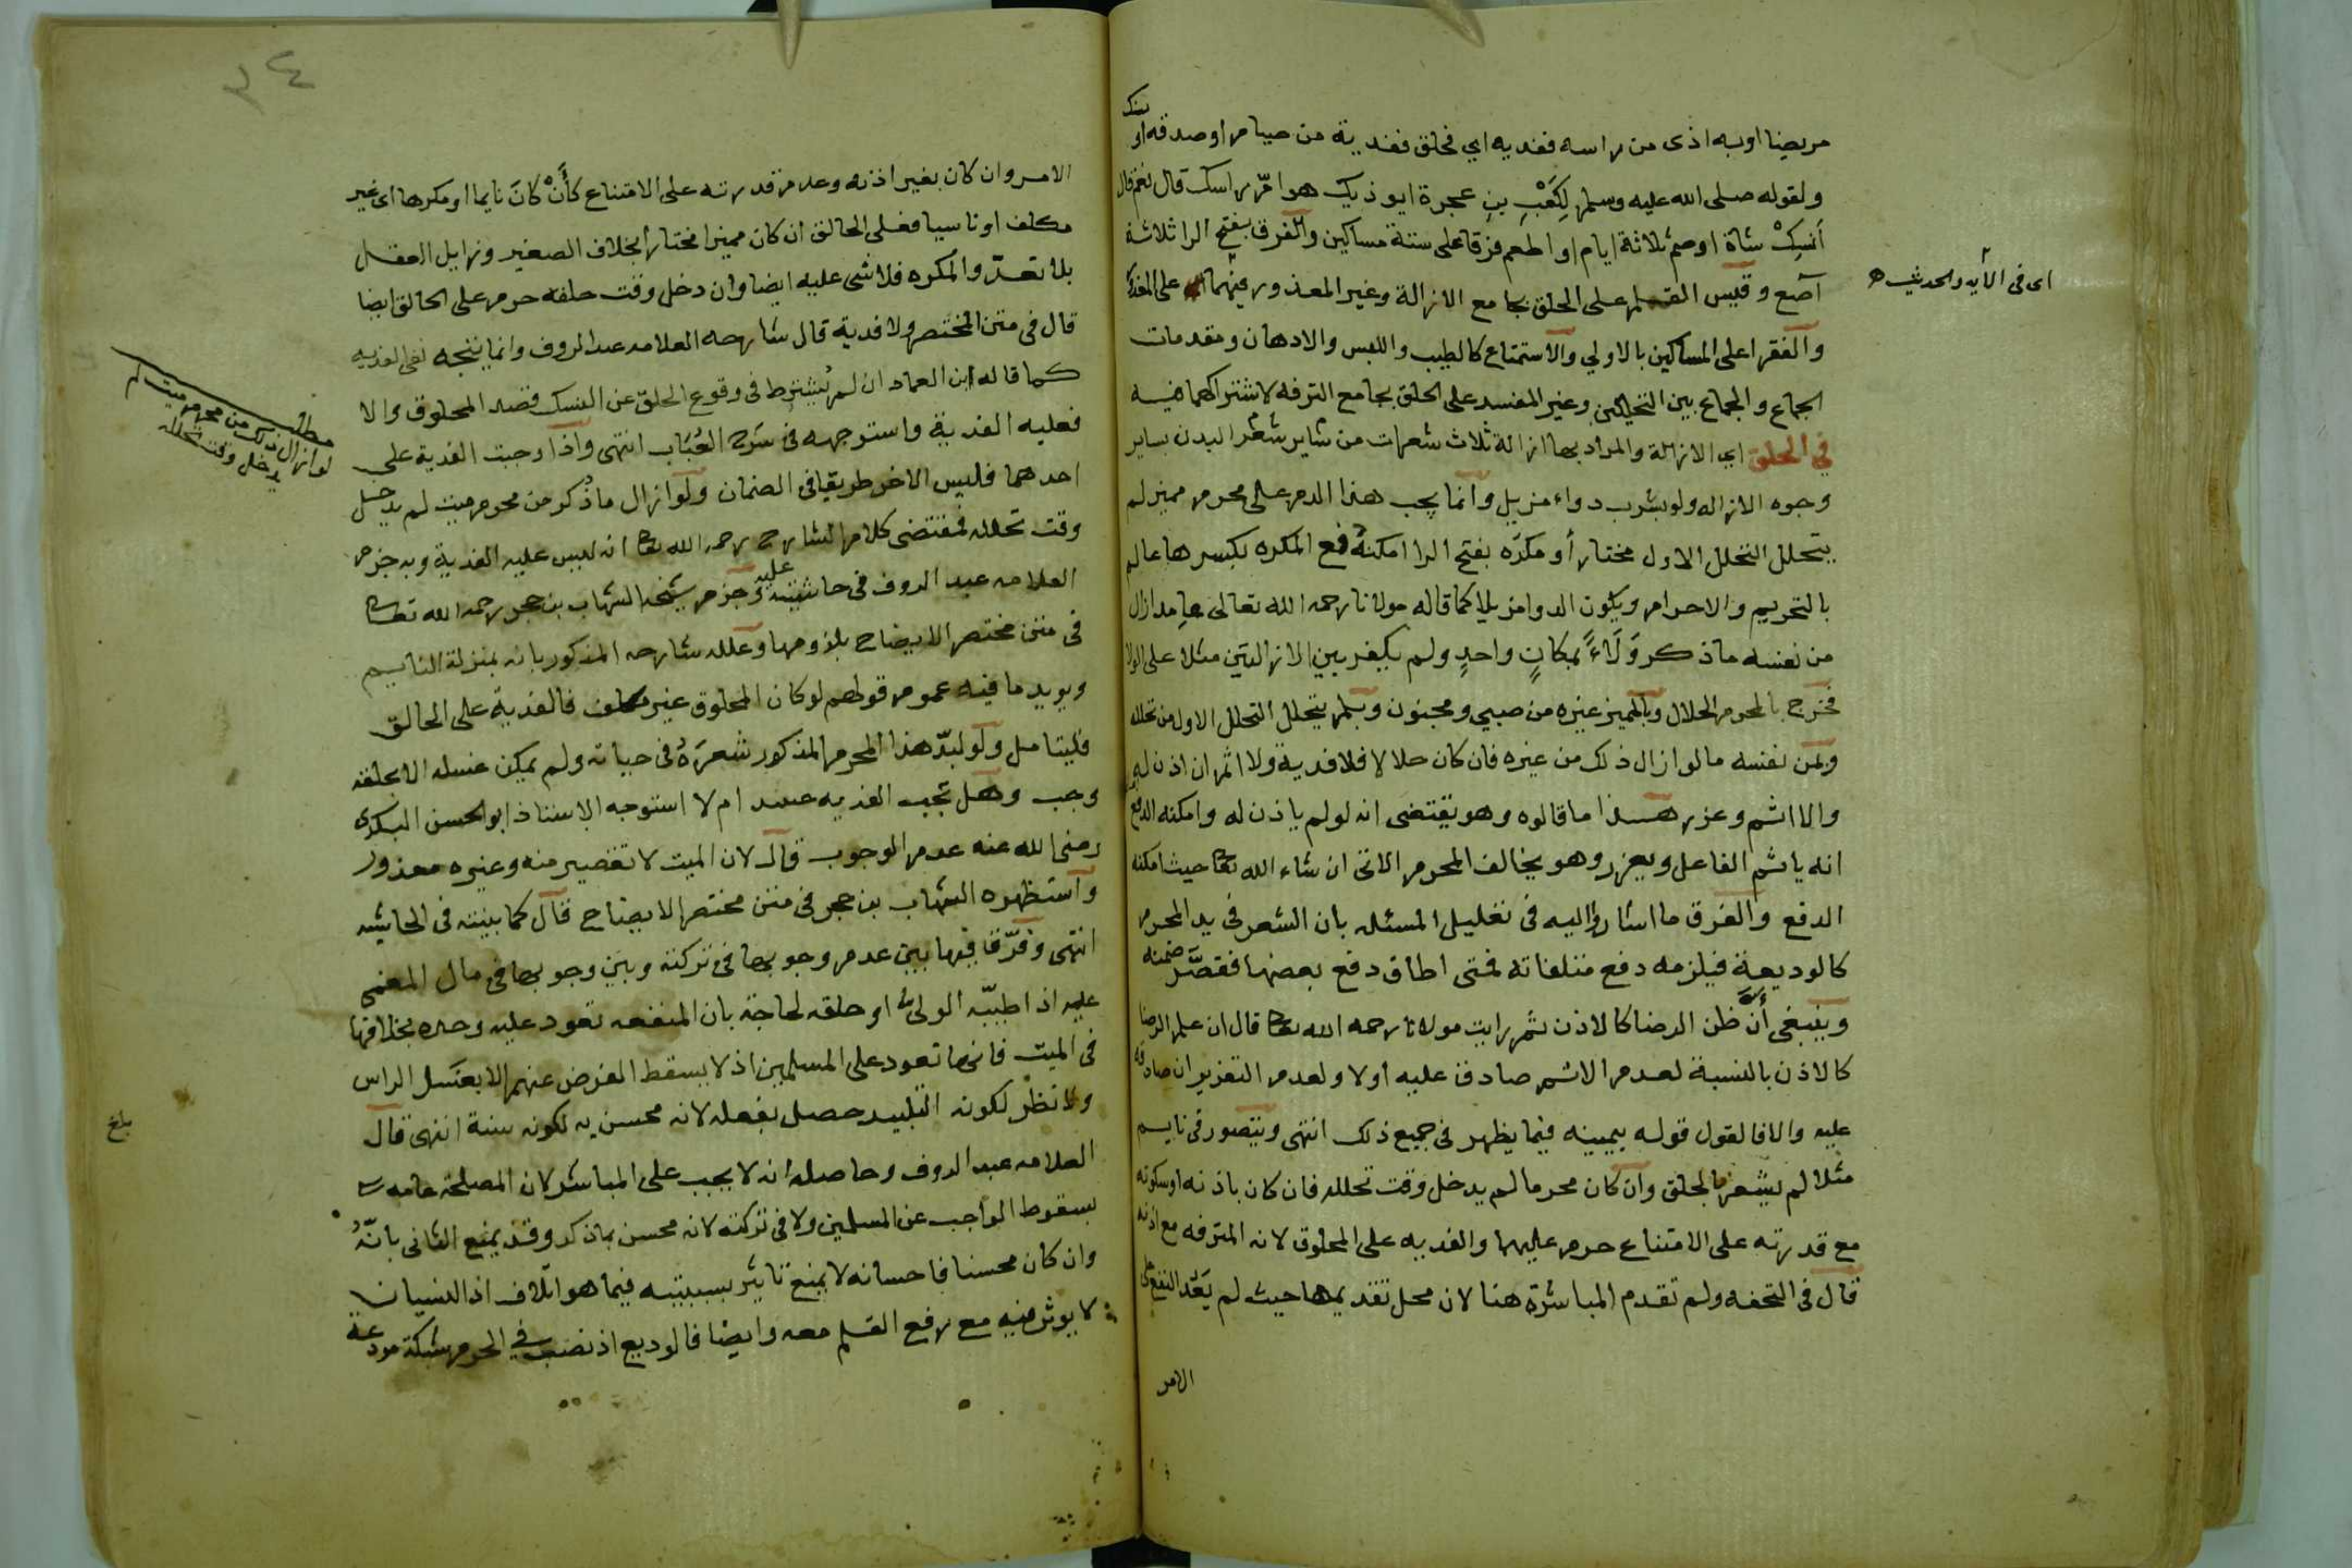 مريضا او به اذى من راسه ففديه اي فحلق ففدية من صيام او صدقه او
نسك
ولقوله صلى الله عليه وسلم لِكَعْبِ بنِ عجرة ايوذيك هوامّ راسك قال نعم قال
اَنسِكْ شاة او صم ثلاثة ايام او اطعم فرقا على ستة مساكين والفرق بفتح الرا ثلاثة
آصع وقيس القلم على الحلق بجامع الازالة وغير المعذور فيهما على المعذور
اى فى الآيه والحديث
والفقرا على المساكين بالاولي والاستمتاع كالطيب واللبس والادهان ومقدمات
الجماع والجماع بين التحللين وغير المفسد على الحلق بجامع الترفه لاشتراكهما فيه
في الحلق اي الازالة والمراد بها ازالة ثلاث شعرات من ساير شعر البدن بساير
وجوه الازاله ولو بشرب دواء مزيل وانما يجب هذا الدم على محرم مميز لم
يتحلل التحلل الاول مختار أو مكرَه بفتح الرا امكنه دفع المكره بكسرها عالم
بالتحريم والاحرام ويكون الدوا مزيلا كما قاله مولانا رحمه الله تعالى عامد ازال
من نفسه ما ذكر وَلَاءً بمكانٍ واحدٍ ولم يكفر بين الازالتين مثلا على الولا
فخرج بالمحرم الحلال وبالمميز غيره من صبي ومجنون وبلم يتحلل التحلل الاول من تحلله
وبمن نفسه ما لو ازال ذلك من غيره فان كان حلالا فلا فدية ولا اثم ان اذن له
والا اثم وعزر هذا ما قالوه وهو يقتضى انه لو لم ياذن له وامكنه الدفع
انه ياثم الفاعل ويعزر وهو يخالف المحرم الاتى ان شاء الله تعا حيث امكنه
الدفع والفرق ما اشاروا اليه فى تعليل المسئله بان الشعر فى يد المحرم
كالوديعة فيلزمه دفع متلفاته فمتى اطاق دفع بعضها فقصَّر ضمنه
وينبغى أنَّ ظن الرضا كالاذن ثم رايت مولانا رحمه الله تعا قال ان علم الرضا
كالاذن بالنسبة لعدم الاثم صادق عليه أولا ولعدم التعزير ان صادقه
عليه والا فالقول قوله بيمينه فيما يظهر فى جميع ذلك انتهى ويتصور فى نايم
مثلا لم يشعر بالحلق وان كان محرما لم يدخل وقت تحلله فان كان باذنه او سكوته
مع قدرته على الامتناع حرم عليهما والفديه على المحلوق لانه المترفه مع اذنه
قال فى التحفه ولم تقدم المباشرة هنا لان محل تقديمها حيث لم يَعُد النفع على
الامر
٣٤
الامر وان كان بغير اذنه وعدم قدرته على الامتناع كأَنْ كانَ نايما او مكرها اى غير
مكلف او ناسيا فعلى الحالق ان كان مميزا مختارا بخلاف الصغير وزايل العقل
بلا تعدّ والمكره فلا شى عليه ايضا وان دخل وقت حلقه حرم على الحالق ايضا
قال فى متن المختصر ولا فدية قال شارحه العلامه عبد الروف وانما يتجه نفى الفديه
كما قاله ابن العماد ان لم يُشترط فى وقوع الحلق عن النسك قصد المحلوق والا
فعليه الفدية واستوجهه فى شرح العُبَاب انتهى واذا وجبت الفدية على
احدهما فليس الاخر طريقا فى الضمان ولو ازال ما ذُكر من محرم ميت لم يدخل
وقت تحلله فمقتضى كلام الشارح رحمه الله تعا انه ليس عليه الفدية وبه جزم
العلامه عبد الروف فى حاشيته عليه وجزم شيخه الشهاب بن حجر رحمه الله تعا
فى متن مختصر الايضاح بلزومها وعلله شارحه المذكور بانه بمنزلة النايم
ويويد ما فيه عموم قولهم لو كان المحلوق غير مكلف فالفدية على الحالق
فليتامل ولو لبدّ هذا المحرم المذكور شعرَهُ فى حياته ولم يمكن غسله الا بحلقه
وجب وهل تجب الفديه ام لا استوجه الاستاذ ابو الحسن البكرى
رضى الله عنه عدم الوجوب قال لان الميت لا تقصير منه وغيره معذور
واستظهره الشهاب بن حجر فى متن مختصر الايضاح قال كما بينته فى الحاشيه
انتهى وفرّق فيها بين عدم وجوبها فى تركته وبين وجوبها فى مال المغمى
عليه اذا طيّبه الولى او حلقه لحاجة بان المنفعه تعود عليه وحده بخلافها
فى الميت فانها تعود على المسلمين اذ لا يسقط الفرض عنهم الا بغَسل الراس
ولا نظر لكونه التلبيد حصل بفعله لانه محسن به لكونه سنة انتهى قال
العلامه عبد الروف وحاصله انه لا يجب على المباشر لان المصلحة عامه
بسقوط الواجب عن المسلمين ولا فى تركته لانه محسن بما ذكر وقد يمنع الثانى بانّهُ
وان كان محسنا فاحسانه لا يمنع تاثير بسببيته فيما هو اتلاف اذ النسيان
لا يوثر فيه مع رفع القلم معه وايضا فالوديع اذ نصب في الحرم شبكة مودعة
مطلب
لو ازال ذلك من محرم ميت لم
يدخل وقت تحلله
بلغ